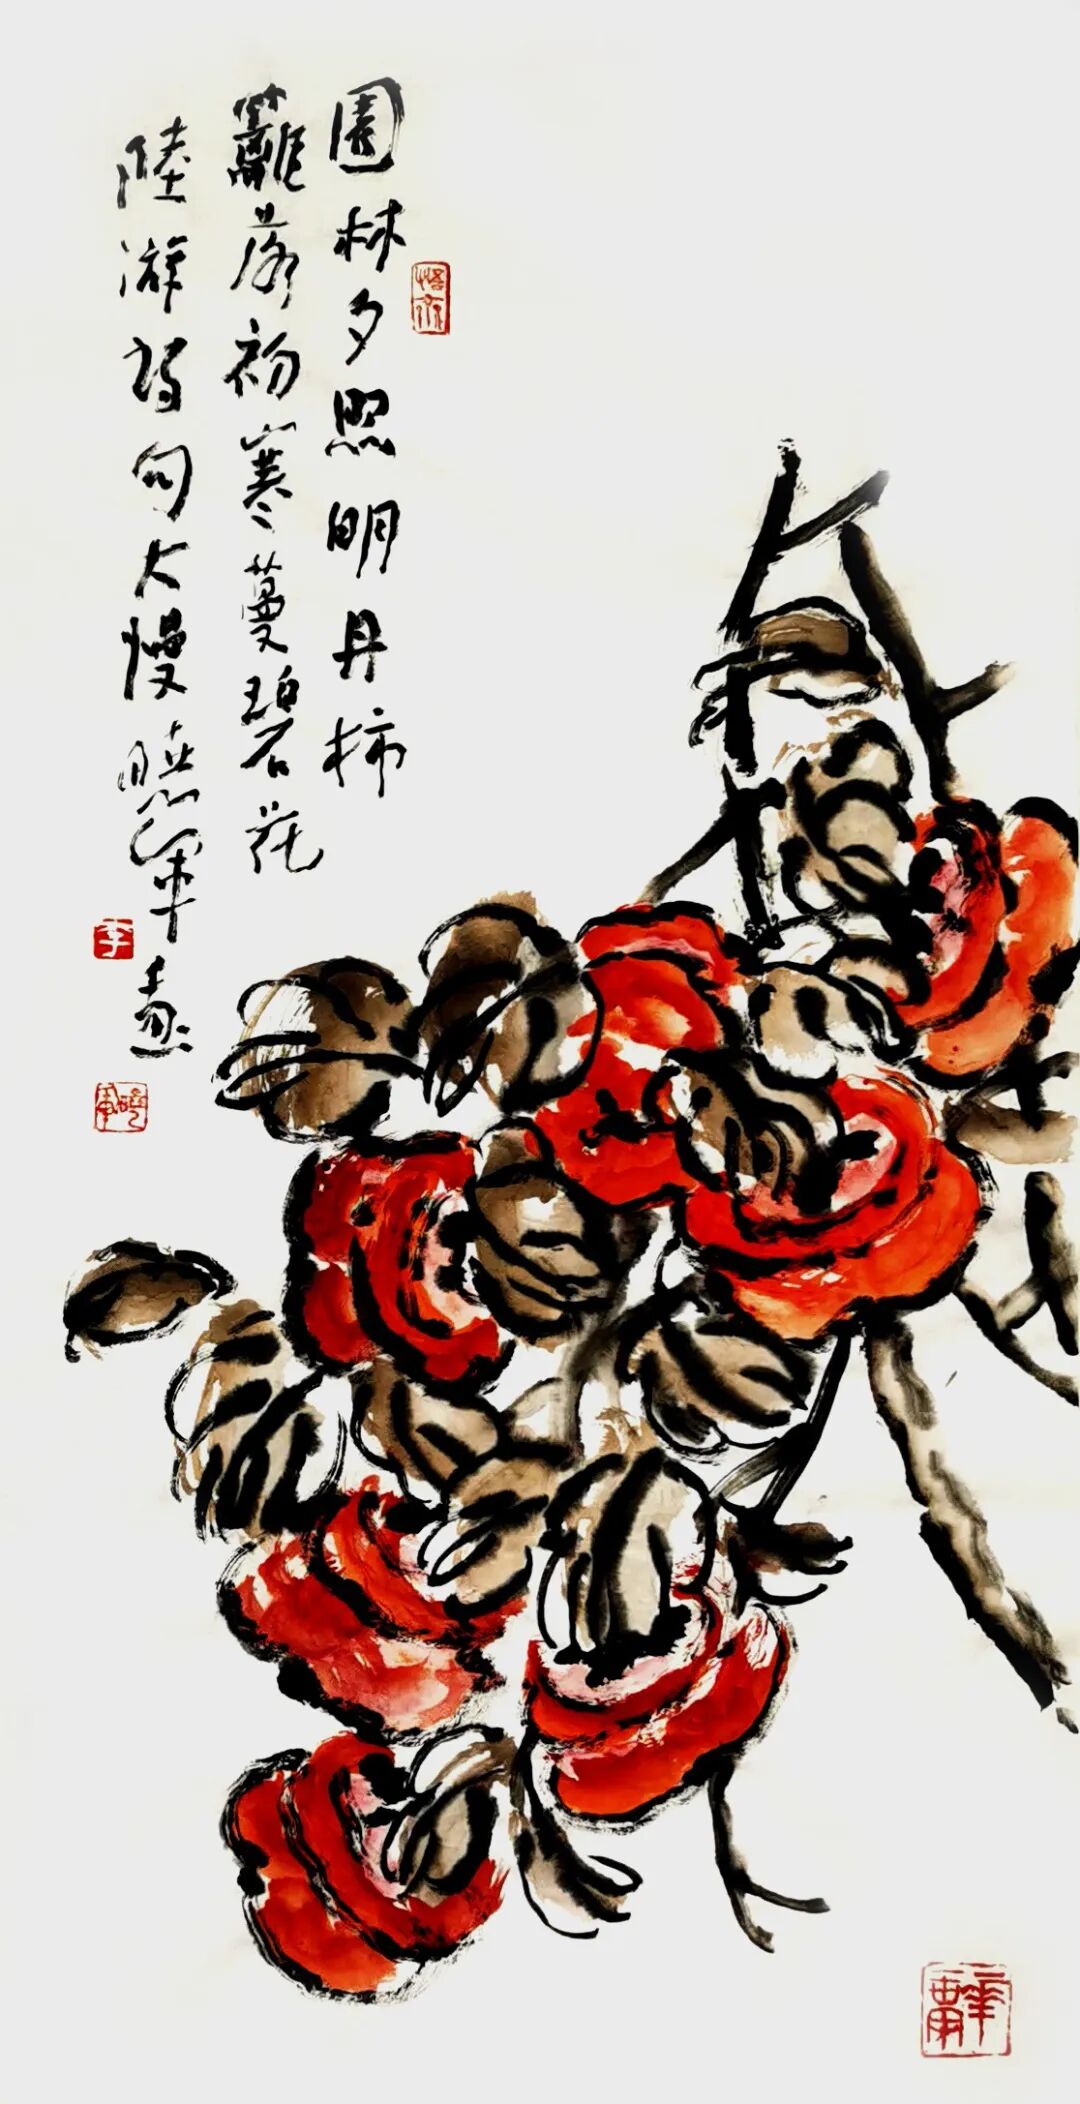 園林夕照明丹柿
籬落初寒蔓碧花
陸游詩句大慢曉軍畫